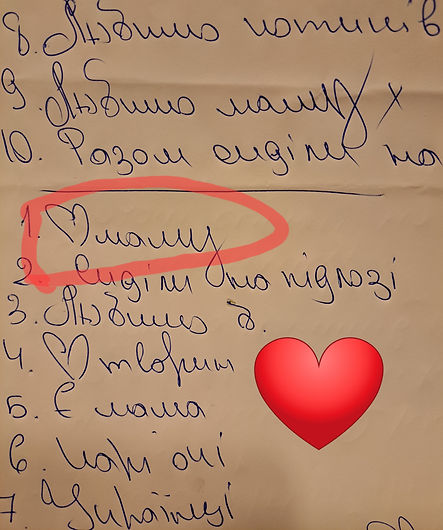 8. Любимо котиків
9. Любимо маму х
10. Разом сиділи на
1. ♡ маму
2. Сиділи на підлозі
3. Любимо
4. ♡ тварин
5. Є мама
6. Карі очі
7. Українці